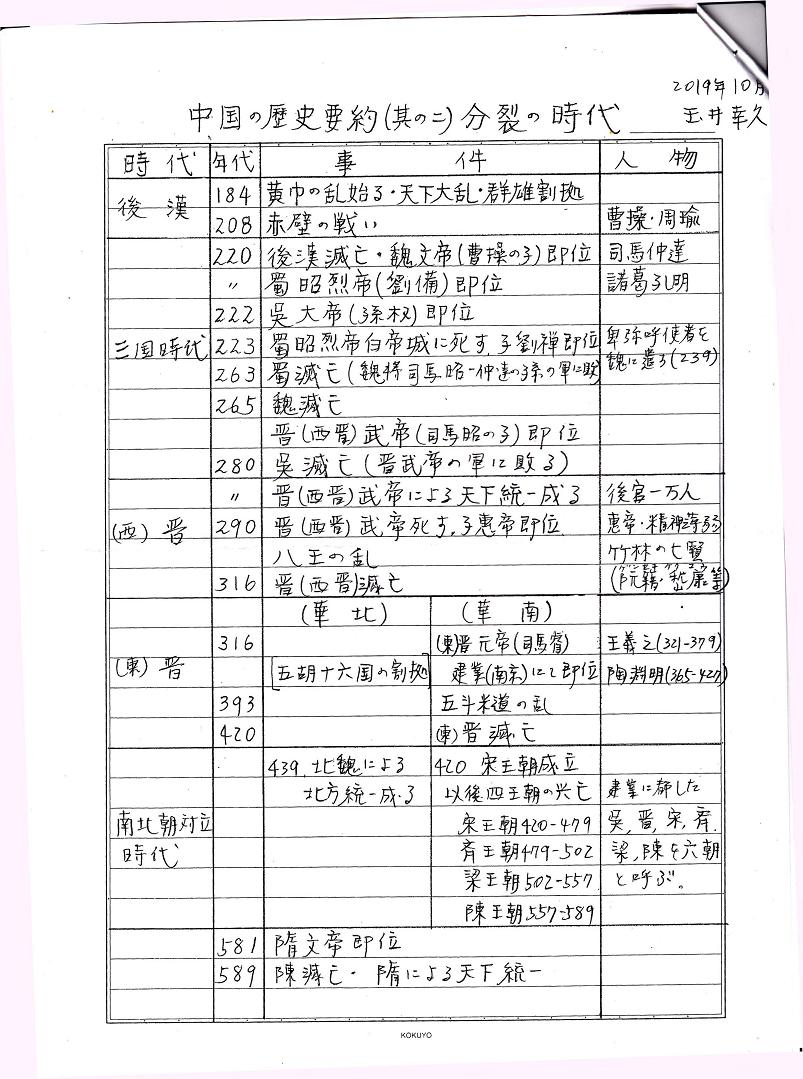 2019年10月
中国の歴史要約(其の二)分裂の時代 玉井幸久
時代 年代 事件 人物
後漢 184 黄巾の乱始る・天下大乱・群雄割拠
208 赤壁の戦い 曹操・周瑜
220 後漢滅亡・魏文帝(曹操の子)即位 司馬仲達
〃 蜀昭烈帝(劉備)即位 諸葛孔明
222 呉大帝(孫权)即位
三国時代 223 蜀昭烈帝白帝城に死す、子劉禅即位 卑弥呼使者を
263 蜀滅亡(魏将司馬昭-仲達の孫の軍に敗 魏に遣る(239)
265 魏滅亡
晋(西晋)武帝(司馬昭の子)即位
280 呉滅亡(晋武帝の軍に敗る)
〃 晋(西晋)武帝による天下統一成る 後宮一万人
(西)晋 290 晋(西晋)武帝死す、子惠帝即位 惠帝・精神薄弱
八王の乱 竹林の七賢
316 晋(西晋)滅亡 (阮籍・嵆康等)
(華北) (華南)
316 (東)晋元帝(司馬睿) 王義之(321-379)
(東)晋 [五胡十六国の割拠] 建業(南京)にて即位 陶渕明(365-427)
393 五斗米道の乱
420 (東)晋滅亡
439 北魏による 420 宋王朝成立
北方統一成る 以後四王朝の兴亡 建業に都した
南北朝対立 宋王朝420-479 呉,晋,宋,斉,
時代 斉王朝479-502 梁,陳を六朝
梁王朝502-557 と呼ぶ。
陳王朝557-589
581 隋文帝即位
589 陳滅亡・隋による天下統一
KOKUYO